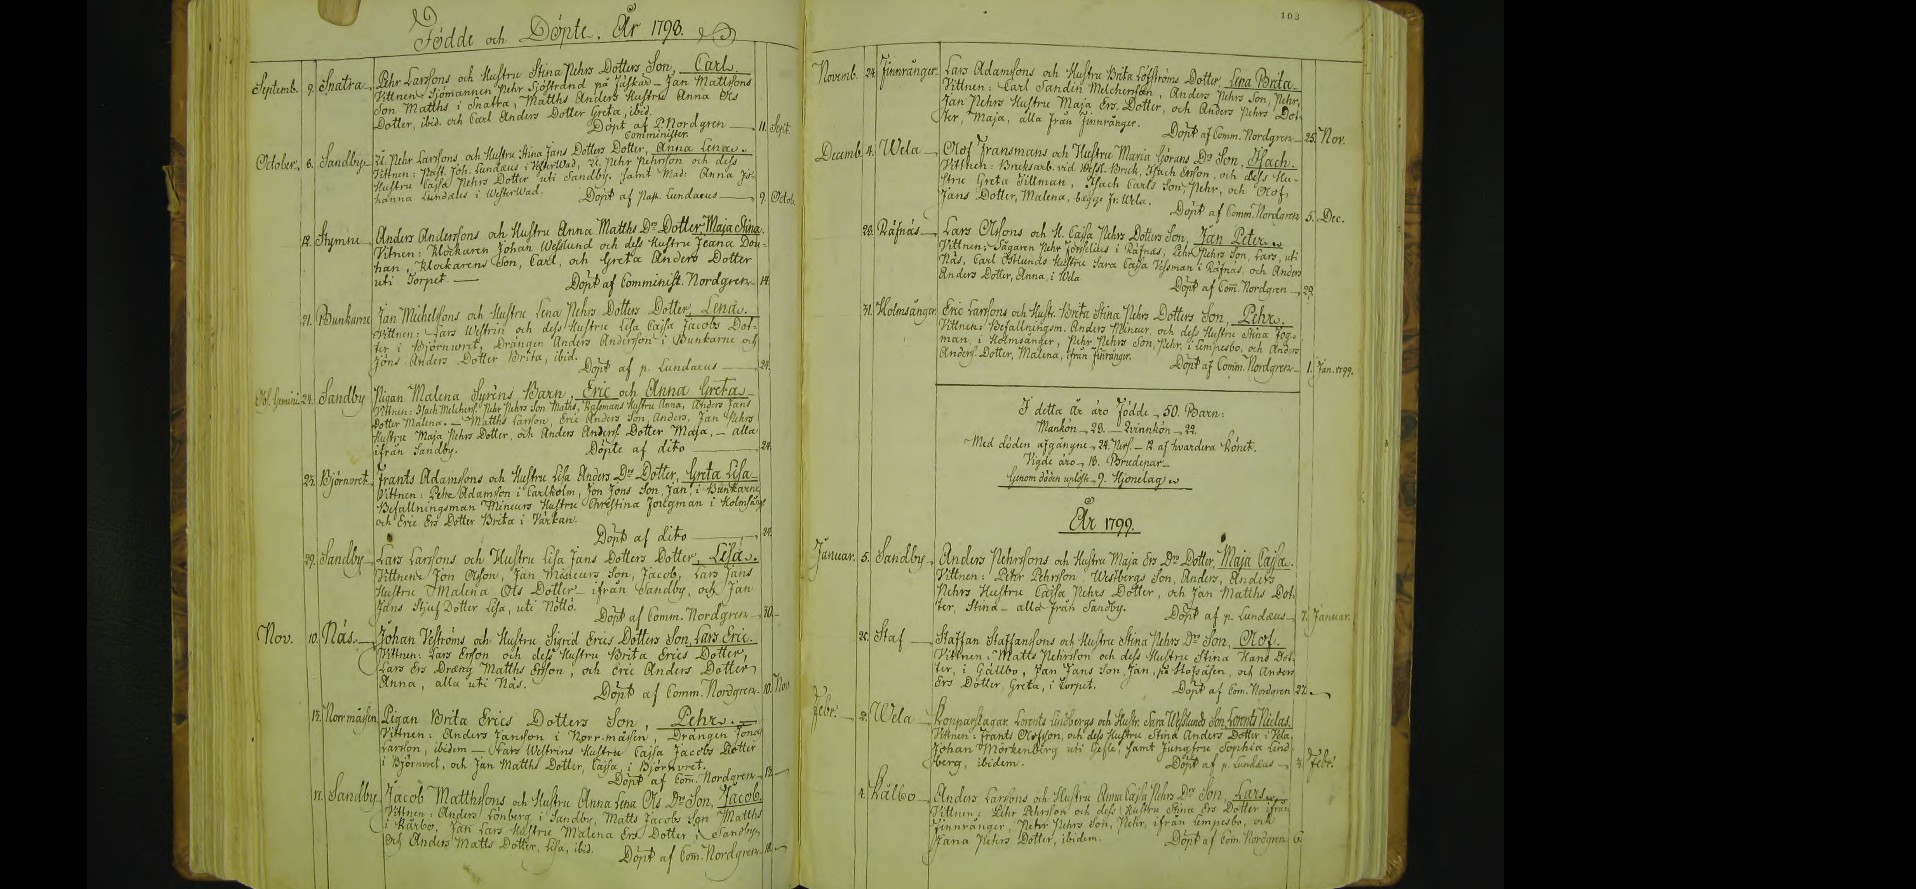 Födde och Döpte. År 1798.
Septemb. 9. Snatra Pehr Larssons och Hustru Stina Pehrs Dotters Son, Carl.
Vittnen: Sjömannen Pehr Sjöstrand på Jan Mattssons
Son Matths i Snatra, Matths Anders Hustru Anna Ols
Dotter, ibid. och Carl Anders Dotter Greta, ibid.
Döpt af P. Nordgren 11. Sept.
Comminister.
October. 8. Sandby Pehr Larssons och Hustru Stina Jans Dotters Dotter, Anna Lena.
Vittnen: Past. Joh. Lundæus i WesterWad, Pehr Pehrsson och dess
Hustru Cajsa Pehrs Dotter uti Sandby. samt Mad: Anna Jo-
hanna Lundæus i WesterWad. Döpt af Past. Lundaeus 9. Octob.
12. Stymne Anders Anderssons och Hustru Anna Matths Dr Dotter Maja Stina.
Vitnen: Klockaren Johan Weslund och dess Hustru Jeana Dou-
han, Klockarens Son, Carl, och Greta Anders Dotter
uti Torpet. Döpt af Comminist. Nordgren 14.
21. Bunkarne Jan Michelssons och Hustru Lena Pehrs Dotters Dotter, Lena.
Vittnen: Lars Westrin och dess Hustru Lisa Cajsa Jacobs Dot-
ter i Björnvret, Drängen Anders Andersson i Bunkarne och
Jöns Anders Dotter Brita, ibid.
Döpt af p. Lundaeus 24.
24. Sandby Pigan Malena Syréns Barn, Eric och Anna Greta
Vittnen: Isach Melchers. Pehr Pehrs Son Maths, Hustru Anna, Anders Jans
Dotter Malena. Matths Larsson, Eric Anders Son, Anders, Jan Pehrs
Hustru Maja Pehrs Dotter, och Anders Anders. Dotter Maja, alla
ifrån Sandby. Döpte af dito 24.
Björnvret Frants Adamssons och Hustru Lisa Anders Dr Dotter, Greta Lisa
Vittnen: Pehr Adamsson i Carlholm, Jon Jons Son, Jan, i Bunkarne
Befallningsman Mineurs Hustru Christina i Holmsäng
och Eric Ers Dotter Brita i
Döpt af dito
29. Sandby Lars Larssons och Hustru Lisa Jans Dotters Dotter, Lisa.
Vittnen Jon Olsson, Jan Mineurs Son, Jacob, Lars Jans
Hustru Malena Ols Dotter ifrån Sandby, och Jan
Jans Stjuf Dotter Lisa, uti Nöttö.
Döpt af Comm. Nordgren 30.
Nov. 10. Näs. Johan Veströms och Hustru Sigrid Erics Dotters Son, Lars Eric.
Vittnen: Lars Ersson och dess Hustru Brita Erics Dotter,
Lars Ers Dräng Matths Ersson, och Eric Anders Dotter
Anna, alla uti Näs. Döpt af Comm. Nordgren 10. Nov.
Norrmåssen Pigan Brita Erics Dotters Son, Pehr.
Vittnen: Anders Jansson i Norrmåssen, Drängen Jonas
Larsson, ibidem Lars Westrins Hustru Cajsa Jacobs Dotter
i Björnvret, och Jan Matths Dotter, Cajsa, i Björnvret.
Döpt af Com. Nordgren
Sandby Jacob Matthssons och Hustru Anna Lena Ols Dr Son, Jacob.
Vittnen: Anders Lönberg i Sandby, Matts Jacobs Son Matths
i Kärbo, Jan Lars Hustru Malena Ers Dotter i Sandby,
och Anders Matts Dotter, Lisa, ibid. Döpt af Com. Nordgren 18.
103
Novemb. 24. Finnränger Lars Adamssons och Hustru Brita Löfströms Dotter, Lena Brita
Vittnen: Carl Sandin Melchersson, Anders Pehrs Son, Pehr,
Jan Pehrs Hustru Maja Ers. Dotter, och Anders Pehrs Dot-
ter, Maja, alla från Finnränger.
Döpt af Comm. Nordgren 25. Nov.
Decemb. 4. Wela Olof Fransmans och Hustru Maria Görans Dr Son, Isach.
Vittnen: Bruksarb. vid Bruk, Isach Ersson, och dess Hu-
stru Greta Tillman, Isach Carls Son, Pehr, och Olof
Jans Dotter, Malena, bägge fr. Wela.
Döpt af Comm. Nordgren 5. Dec.
28. Räfnäs Lars Olssons och H. Cajsa Pehrs Dotters Son, Jan Peter.
Vittnen: Sågaren Pehr i Räfnäs, Pehr Pehrs Son, Lars, uti
Näs, Carl Östlunds Hustru Sara Cajsa Vessman i Räfnäs, och Anders
Anders Dotter, Anna, i Wela
Döpt af Com. Nordgren 29.
31. Holmsänger Eric Larssons och Hustr. Brita Stina Pehrs Dotters Son, Pehr.
Vittnen: Befallningsm. Anders Mineur, och dess Hustru Stina
man, i Holmsänger, Pehr Pehrs Son, Pehr, i Lempesbo, och Anders
Anders. Dotter, Malena, ifrån Finränger.
Döpt af Comm. Nordgren 1. Jan. 1799.
I detta År äro Födde 50. Barn:
Mankön 28. Qvinnkön 22.
Med döden afgångne 24. Pers. 12. af hvardera könet.
Vigde äro 13. Brudepar
Genom döden uplöste 9. Hjonelag
År 1799.
Januar. 5. Sandby Anders Pehrssons och Hustru Maja Ers Dr Dotter, Maja Cajsa.
Vittnen: Peter Pehrsson Westbergs Son, Anders, Anders
Pehrs Hustru Cajsa Pehrs Dotter, och Jan Matths Dot-
ter, Stina alla från Sandby. Döpt af p. Lundæus 7. Januar.
Staf Staffan Staffanssons och Hustru Stina Pehrs Dr Son, Olof.
Vittnen: Matts Pehrsson och dess Hustru Stina Hans Dot-
ter, i Gällbo, Jan Jans Son, Jan, på och Anders
Ers Dotter, Greta, i Torpet. Döpt af Com. Nordgren 27.
Febr. 2. Wela Kopparslagar. Lorents Lindbergs och Hustr. Sara Weslunds Son, Lorents Niclas.
Vittnen: Frants Olofsson, och dess Hustru Stina Anders Dotter i Vela,
Johan Mörkenberg uti Gefle, samt Jungfru Sophia Lind-
berg, ibidem. Döpt af p. Lundæus 3. Febr.
4. Kälbo Anders Larssons och Hustru Anna Cajsa Pehrs Dr Son, Lars.
Vittnen: Pehr Pehrsson och dess Hustru Stina Ers Dotter ifrån
Finnränger, Pehr Pehrs Son, Pehr, ifrån Lempesbo, och
Jana Pehrs Dotter, ibidem. Döpt af Com. Nordgren 6.